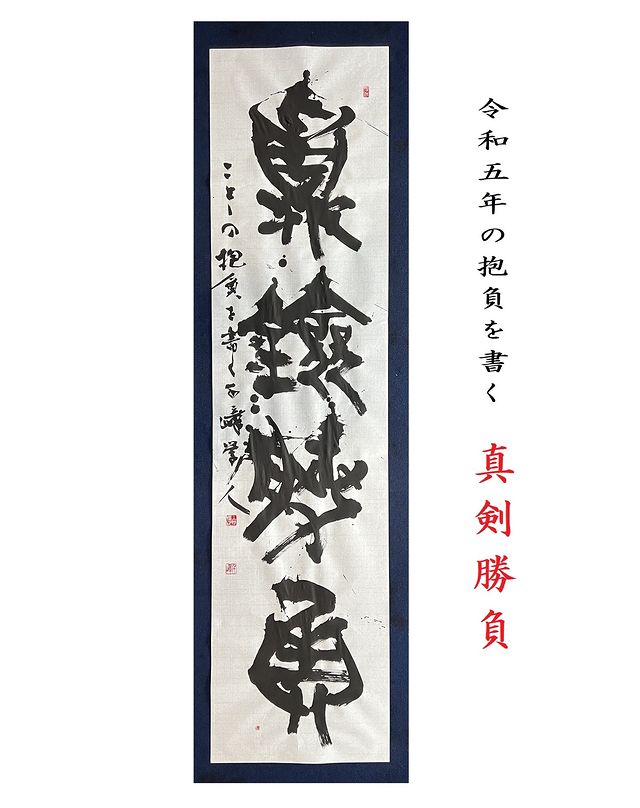 令和五年の抱負を書く 真剣勝負
真剣勝負
ことしの抱負を書く 学人